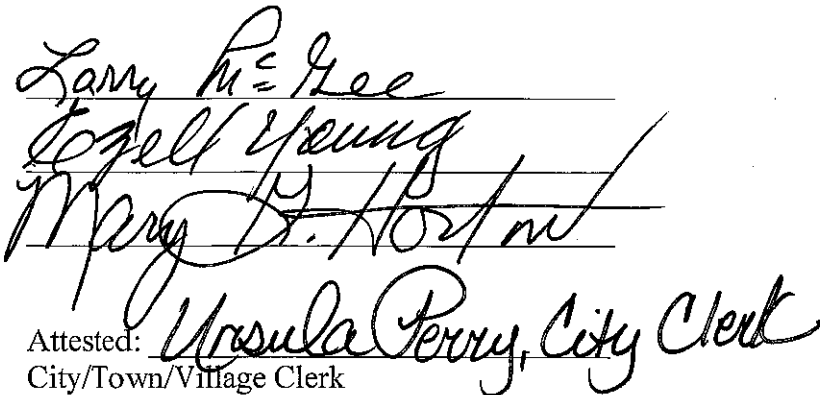 Larry McGee
Ezell Young
Mary G. Horton
Attested: Ursula Perry, City Clerk
City/Town/Village Clerk